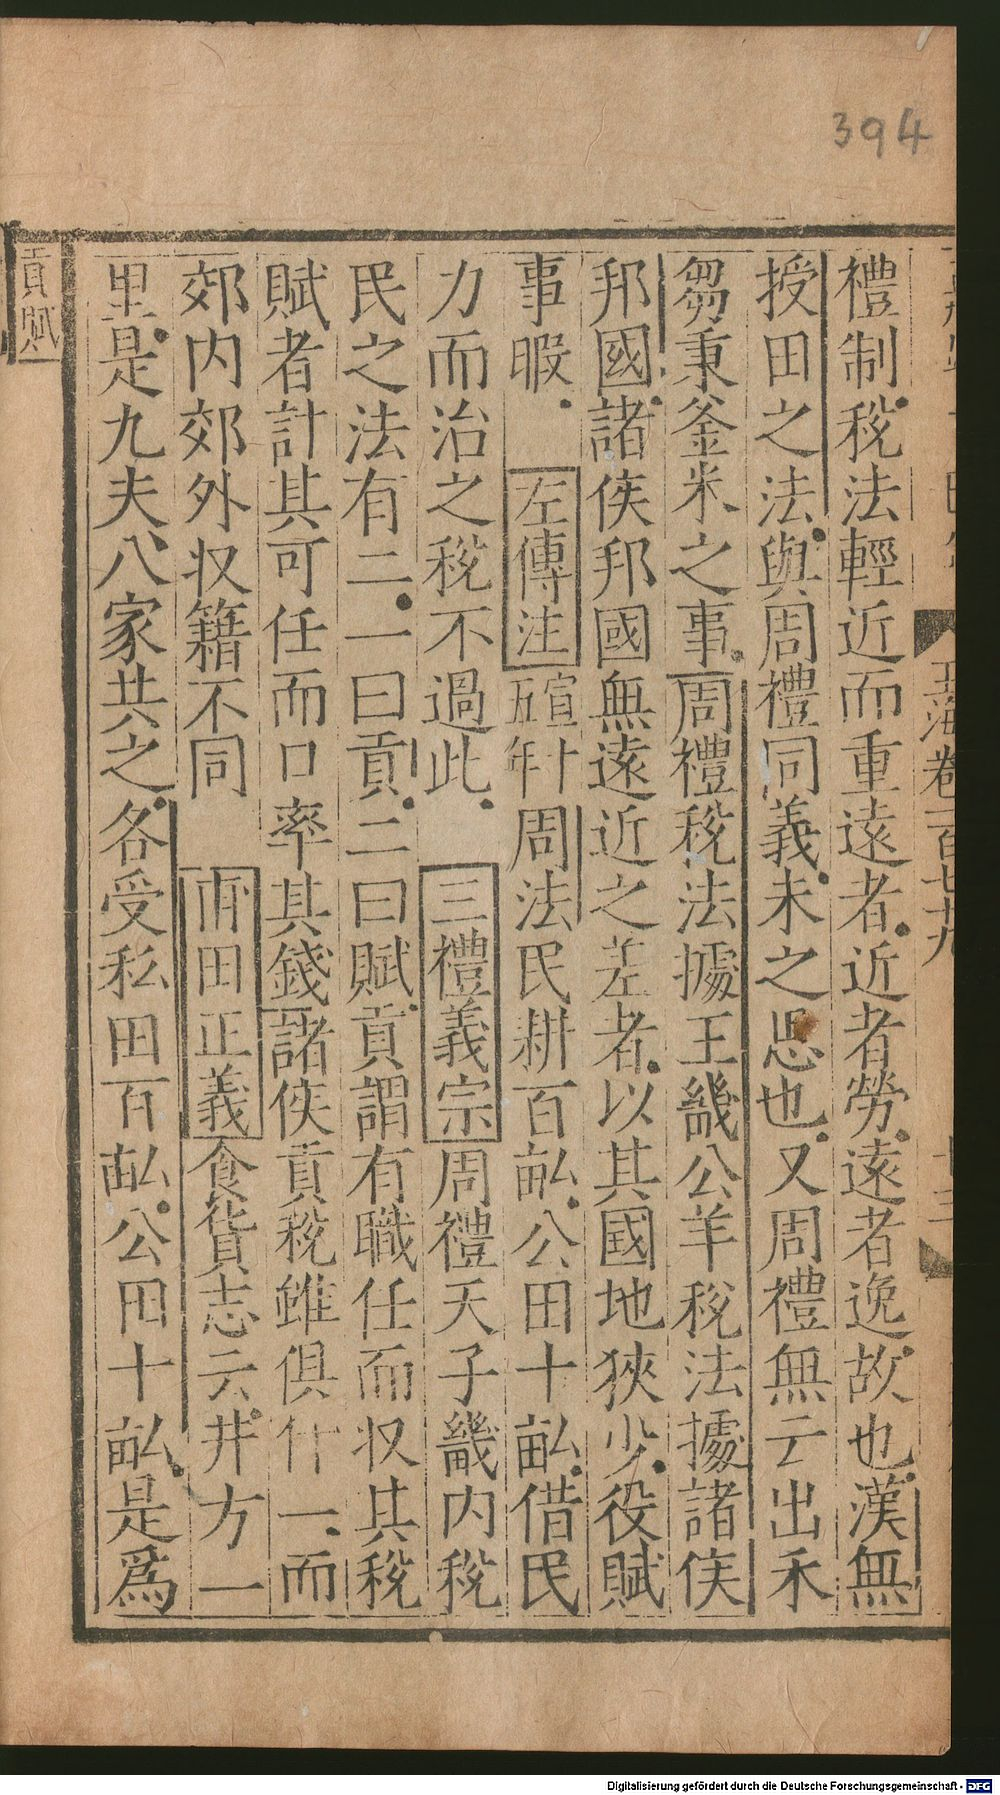 394
玉海卷一百七十九
十三
禮制稅法輕近而重遠者近者勞遠者逸故也漢無
授田之法與周禮同義未之思也又周禮無云出禾
芻秉釜米之事周禮稅法據王畿公羊稅法據諸侯
邦國諸侯邦國無遠近之差者以其國地狹少役賦
事暇左傳注宣十五年周法民耕百畝公田十畝借民
力而治之稅不過此三禮義宗周禮天子畿内稅
民之法有二一曰貢二曰賦貢謂有職任而收其稅
賦者計其可任而口率其錢諸侯貢稅雖俱什一而
郊内郊外收籍不同甫田正義食貨志云井方一
里是九夫八家共之各受私田百畝公田十畝是爲
貢賦
Digitalisierung gefördert durch die Deutsche Forschungsgemeinschaft - DFG